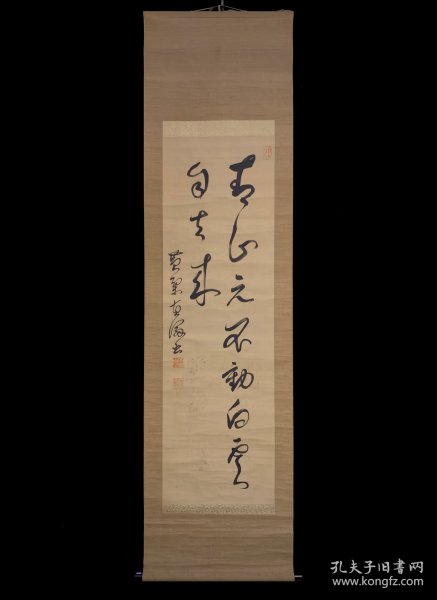 青山元不動白雲
自去来
黄檗書
孔夫子旧书网
www.kongfz.com